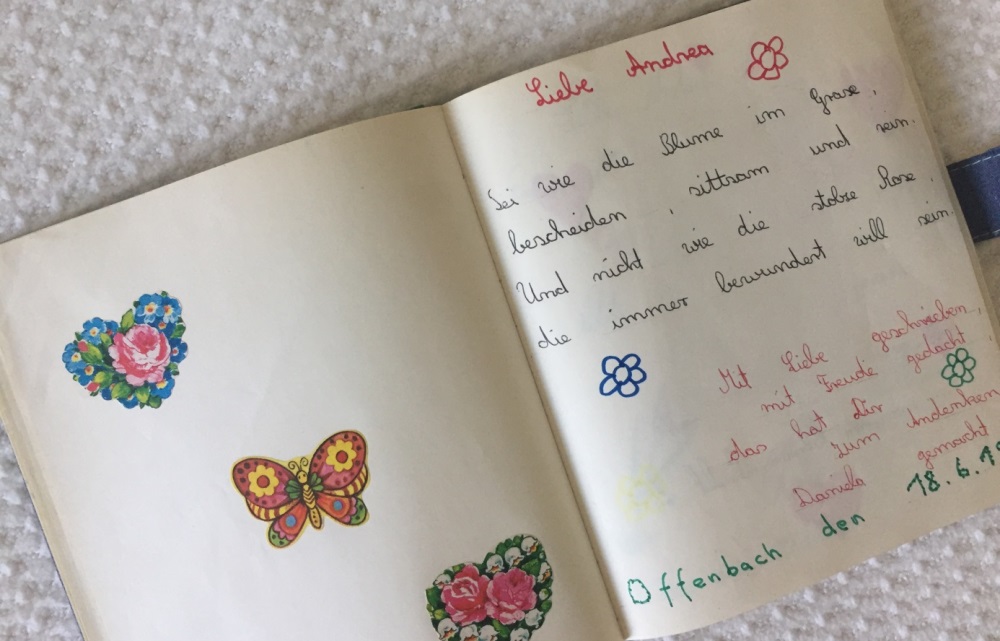 Liebe Andrea
Sei wie die Blume im Grase,
bescheiden, sittsam und rein.
Und nicht wie die stolze Rose,
die immer bewundert will sein.
Mit Liebe geschrieben,
mit Freude gedacht
das hat Dir
zum Andenken
gemacht
Daniela
Offenbach den 18.6.19